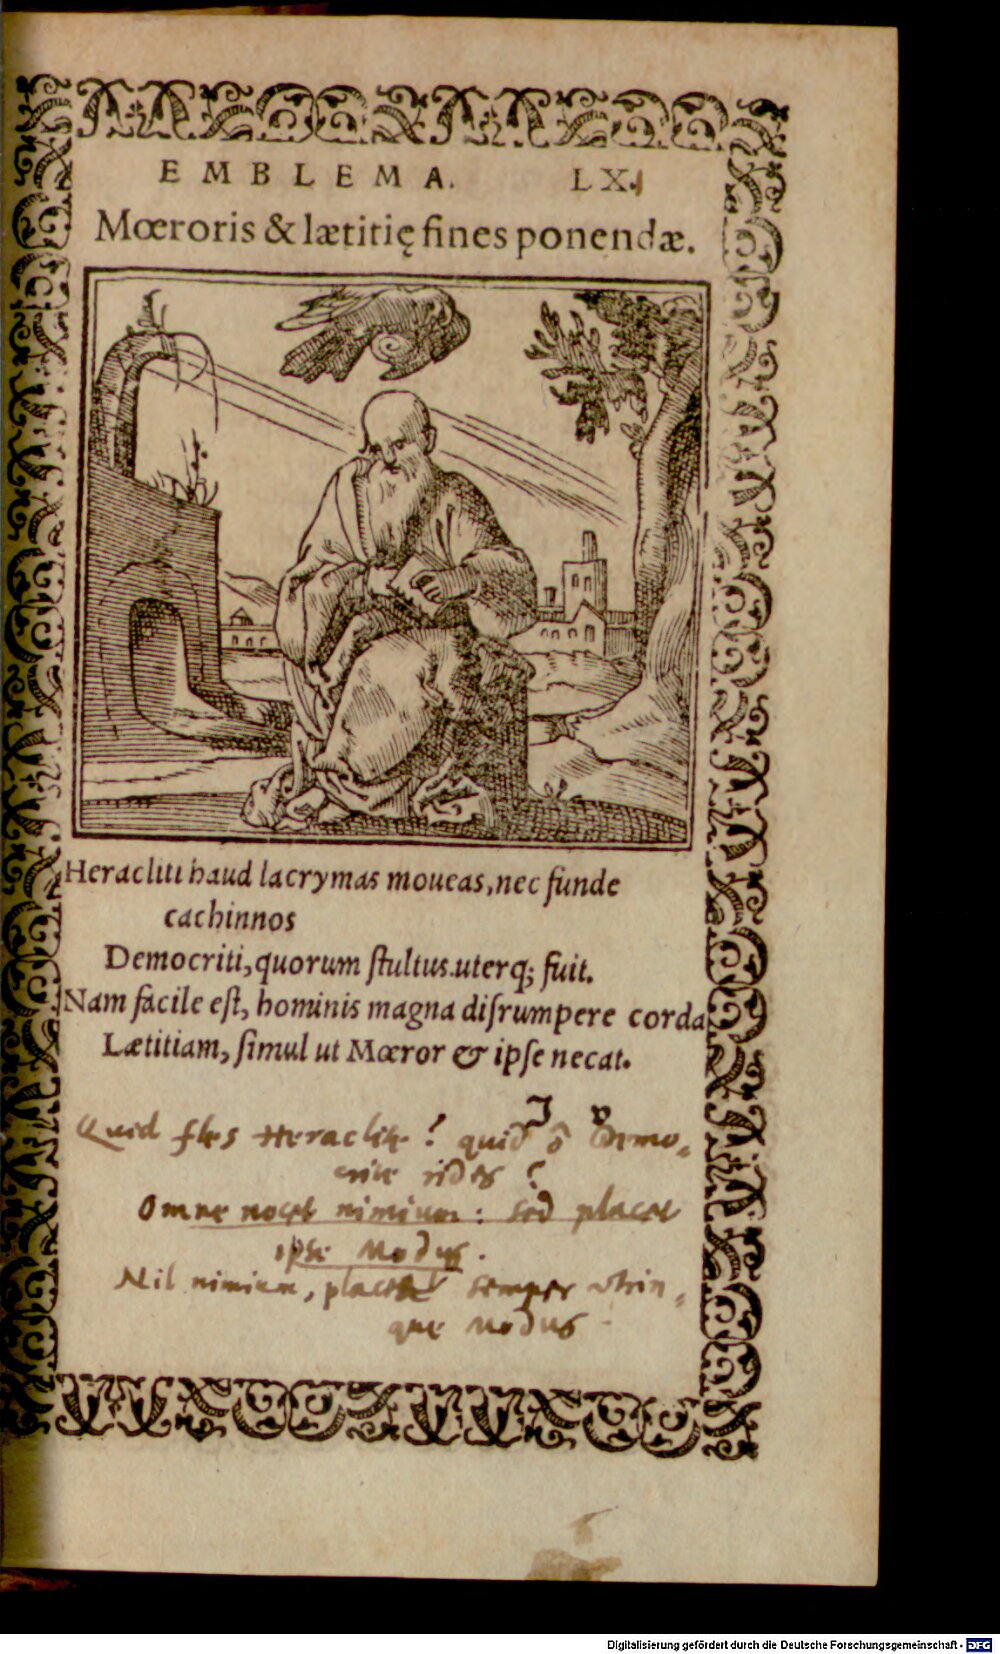 EMBLEMA. LX.
Mœroris & lætitię fines ponendæ.
Heracliti haud lacrymas moueas, nec funde
cachinnos
Democriti, quorum ſtultus uterq; fuit.
Nam facile eſt, hominis magna diſrumpere corda
Lætitiam, ſimul ut Mœror & ipſe necat.
Quid fles Heraclite? quid ô Demo-
crite rides?
Omne nocet nimium: sed placet
ipse Modus.
Nil nimium, placeat semper vtrin-
que Modus
Digitalisierung gefördert durch die Deutsche Forschungsgemeinschaft - DFG